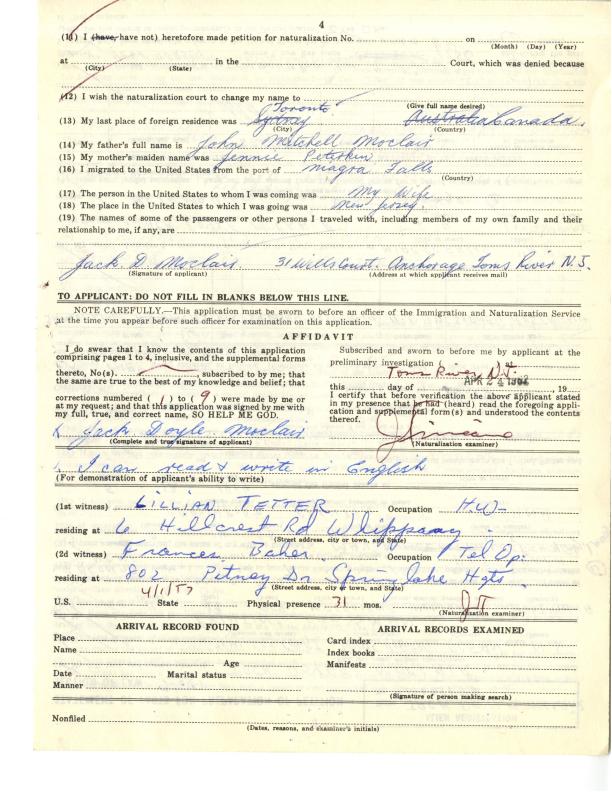 4
(11) I (have, have not) heretofore made petition for naturalization No. on
(Month) (Day) (Year)
at in the Court, which was denied because
(City) (State)
(12) I wish the naturalization court to change my name to
(Give full name desired)
Toronto
(13) My last place of foreign residence was Sydney Australia Canada.
(City) (Country)
(14) My father's full name is John Mitchell Moclair
(15) My mother's maiden name was Jennie Peterkin
(16) I migrated to the United States from the port of niagra Falls
(Country)
(17) The person in the United States to whom I was coming was My Wife
(18) The place in the United States to which I was going was New Jersey.
(19) The names of some of the passengers or other persons I traveled with, including members of my own family and their
relationship to me, if any, are
Jack. D. Moclair. 31 Wills Court. Anchorage Toms River N.J.
(Signature of applicant) (Address at which applicant receives mail)
TO APPLICANT: DO NOT FILL IN BLANKS BELOW THIS LINE.
NOTE CAREFULLY.—This application must be sworn to before an officer of the Immigration and Naturalization Service
at the time you appear before such officer for examination on this application.
AFFIDAVIT
I do swear that I know the contents of this application
comprising pages 1 to 4, inclusive, and the supplemental forms
thereto, No(s). , subscribed to by me; that
the same are true to the best of my knowledge and belief; that
corrections numbered (1) to (9) were made by me or
at my request; and that this application was signed by me with
my full, true, and correct name, SO HELP ME GOD.
Jack Doyle Moclair
(Complete and true signature of applicant)
Subscribed and sworn to before me by applicant at the
preliminary investigation
Toms River N.J.
this day of APR 24 , 19
I certify that before verification the above applicant stated
in my presence that he had (heard) read the foregoing appli-
cation and supplemental form(s) and understood the contents
thereof.
(Naturalization examiner)
I can read & write in English
(For demonstration of applicant's ability to write)
(1st witness) LILLIAN TETTER Occupation H.W-
residing at 6 Hillcrest Rd Whippany.
(Street address, city or town, and State)
(2d witness) Frances Baker. Occupation Tel Op:
residing at 802 Pitney Dr Spring lake Hgts.
(Street address, city or town, and State)
4/1/57
U.S. State Physical presence 31 mos.
(Naturalization examiner)
ARRIVAL RECORD FOUND
Place
Name
Age
Date Marital status
Manner
ARRIVAL RECORDS EXAMINED
Card index
Index books
Manifests
(Signature of person making search)
Nonfiled
(Dates, reasons, and examiner's initials)